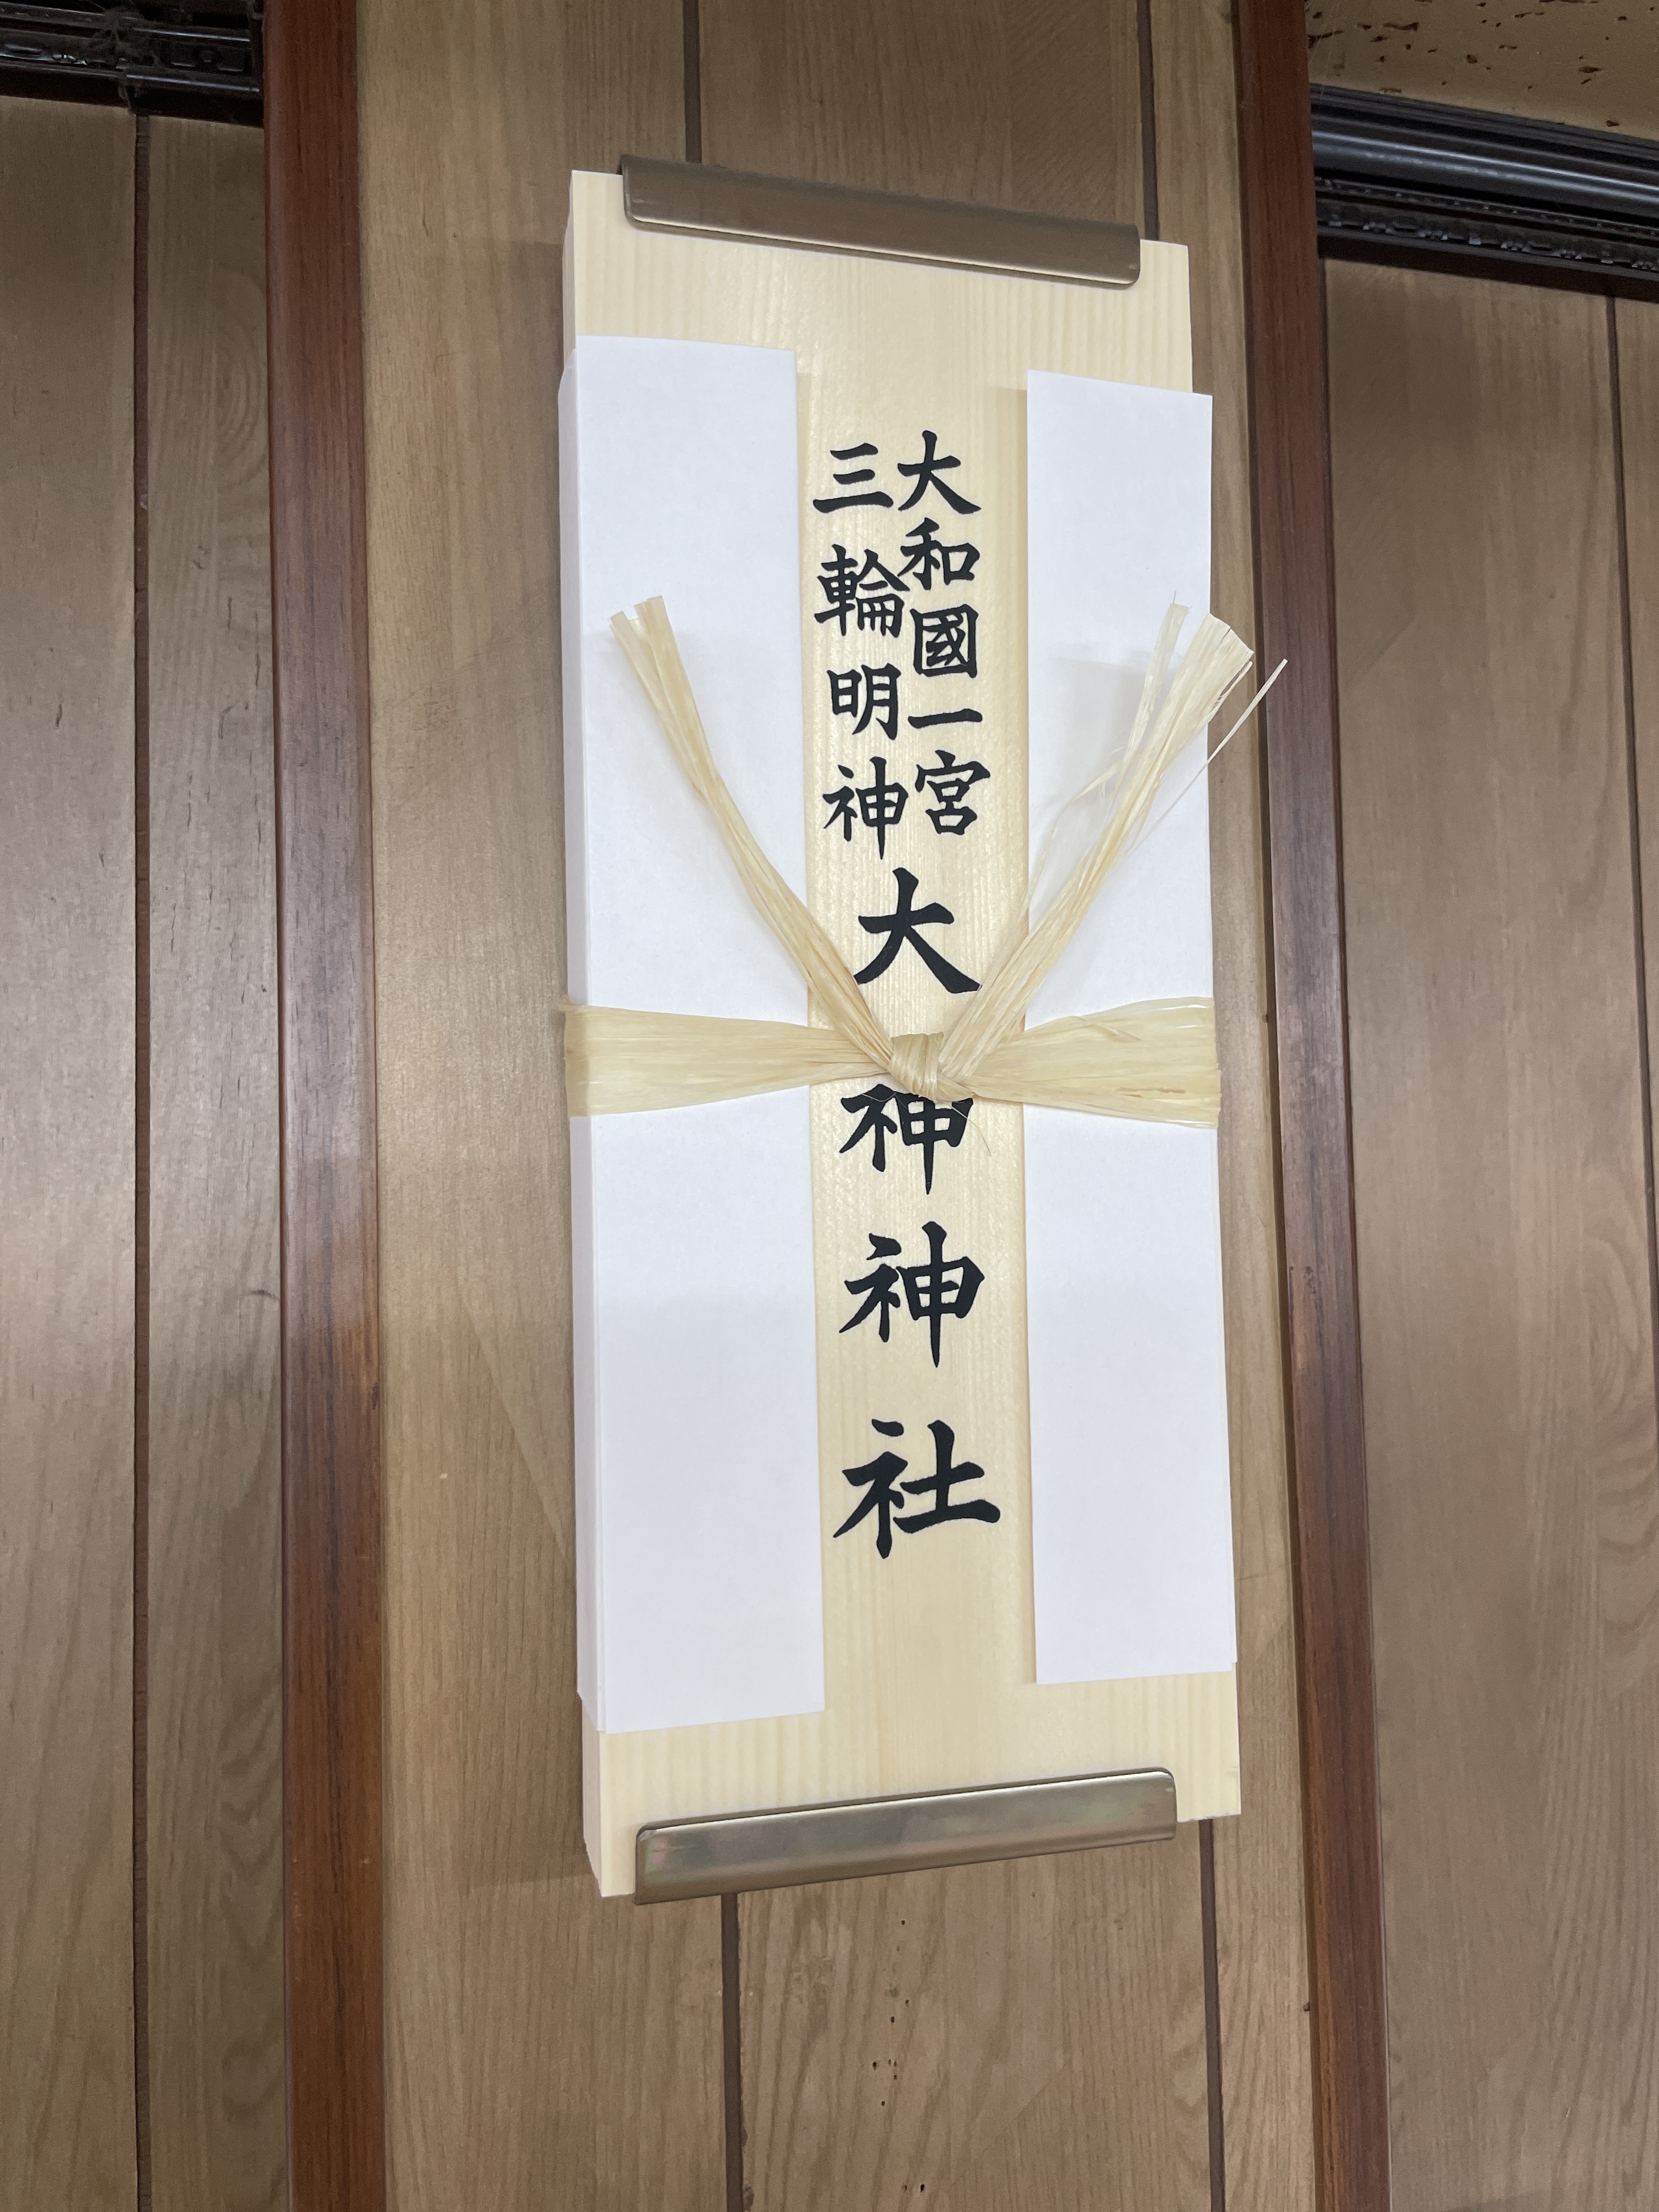 大和國一宮
三輪明神
大神神社